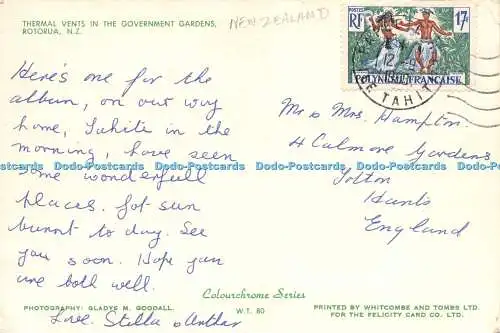 THERMAL VENTS IN THE GOVERNMENT GARDENS,
ROTORUA, N.Z.
NEW ZEALAND
POSTES
RF
17F
POLYNESIE FRANÇAISE
12
TAHITI
Here's one for the
album, on our way
home, Tahite in the
morning, have seen
some wonderfull
places. Got sun
burnt to day. See
you soon. Hope you
are both well.
Love. Stella & Arther
Mr & Mrs. Hampton.
4 Culmore Gardens
Totton
Hants
England
Dodo-Postcards Dodo-Postcards Dodo-Postcards Dodo-Postcards Dodo-Postcards Dodo-Postcards
Dodo-Postcards Dodo-Postcards Dodo-Postcards Dodo-Postcards Dodo-Postcards Dodo-Postcards
PHOTOGRAPHY: GLADYS M. GOODALL.
Colourchrome Series
W.T. 80
PRINTED BY WHITCOMBE AND TOMBS LTD.
FOR THE FELICITY CARD CO. LTD.